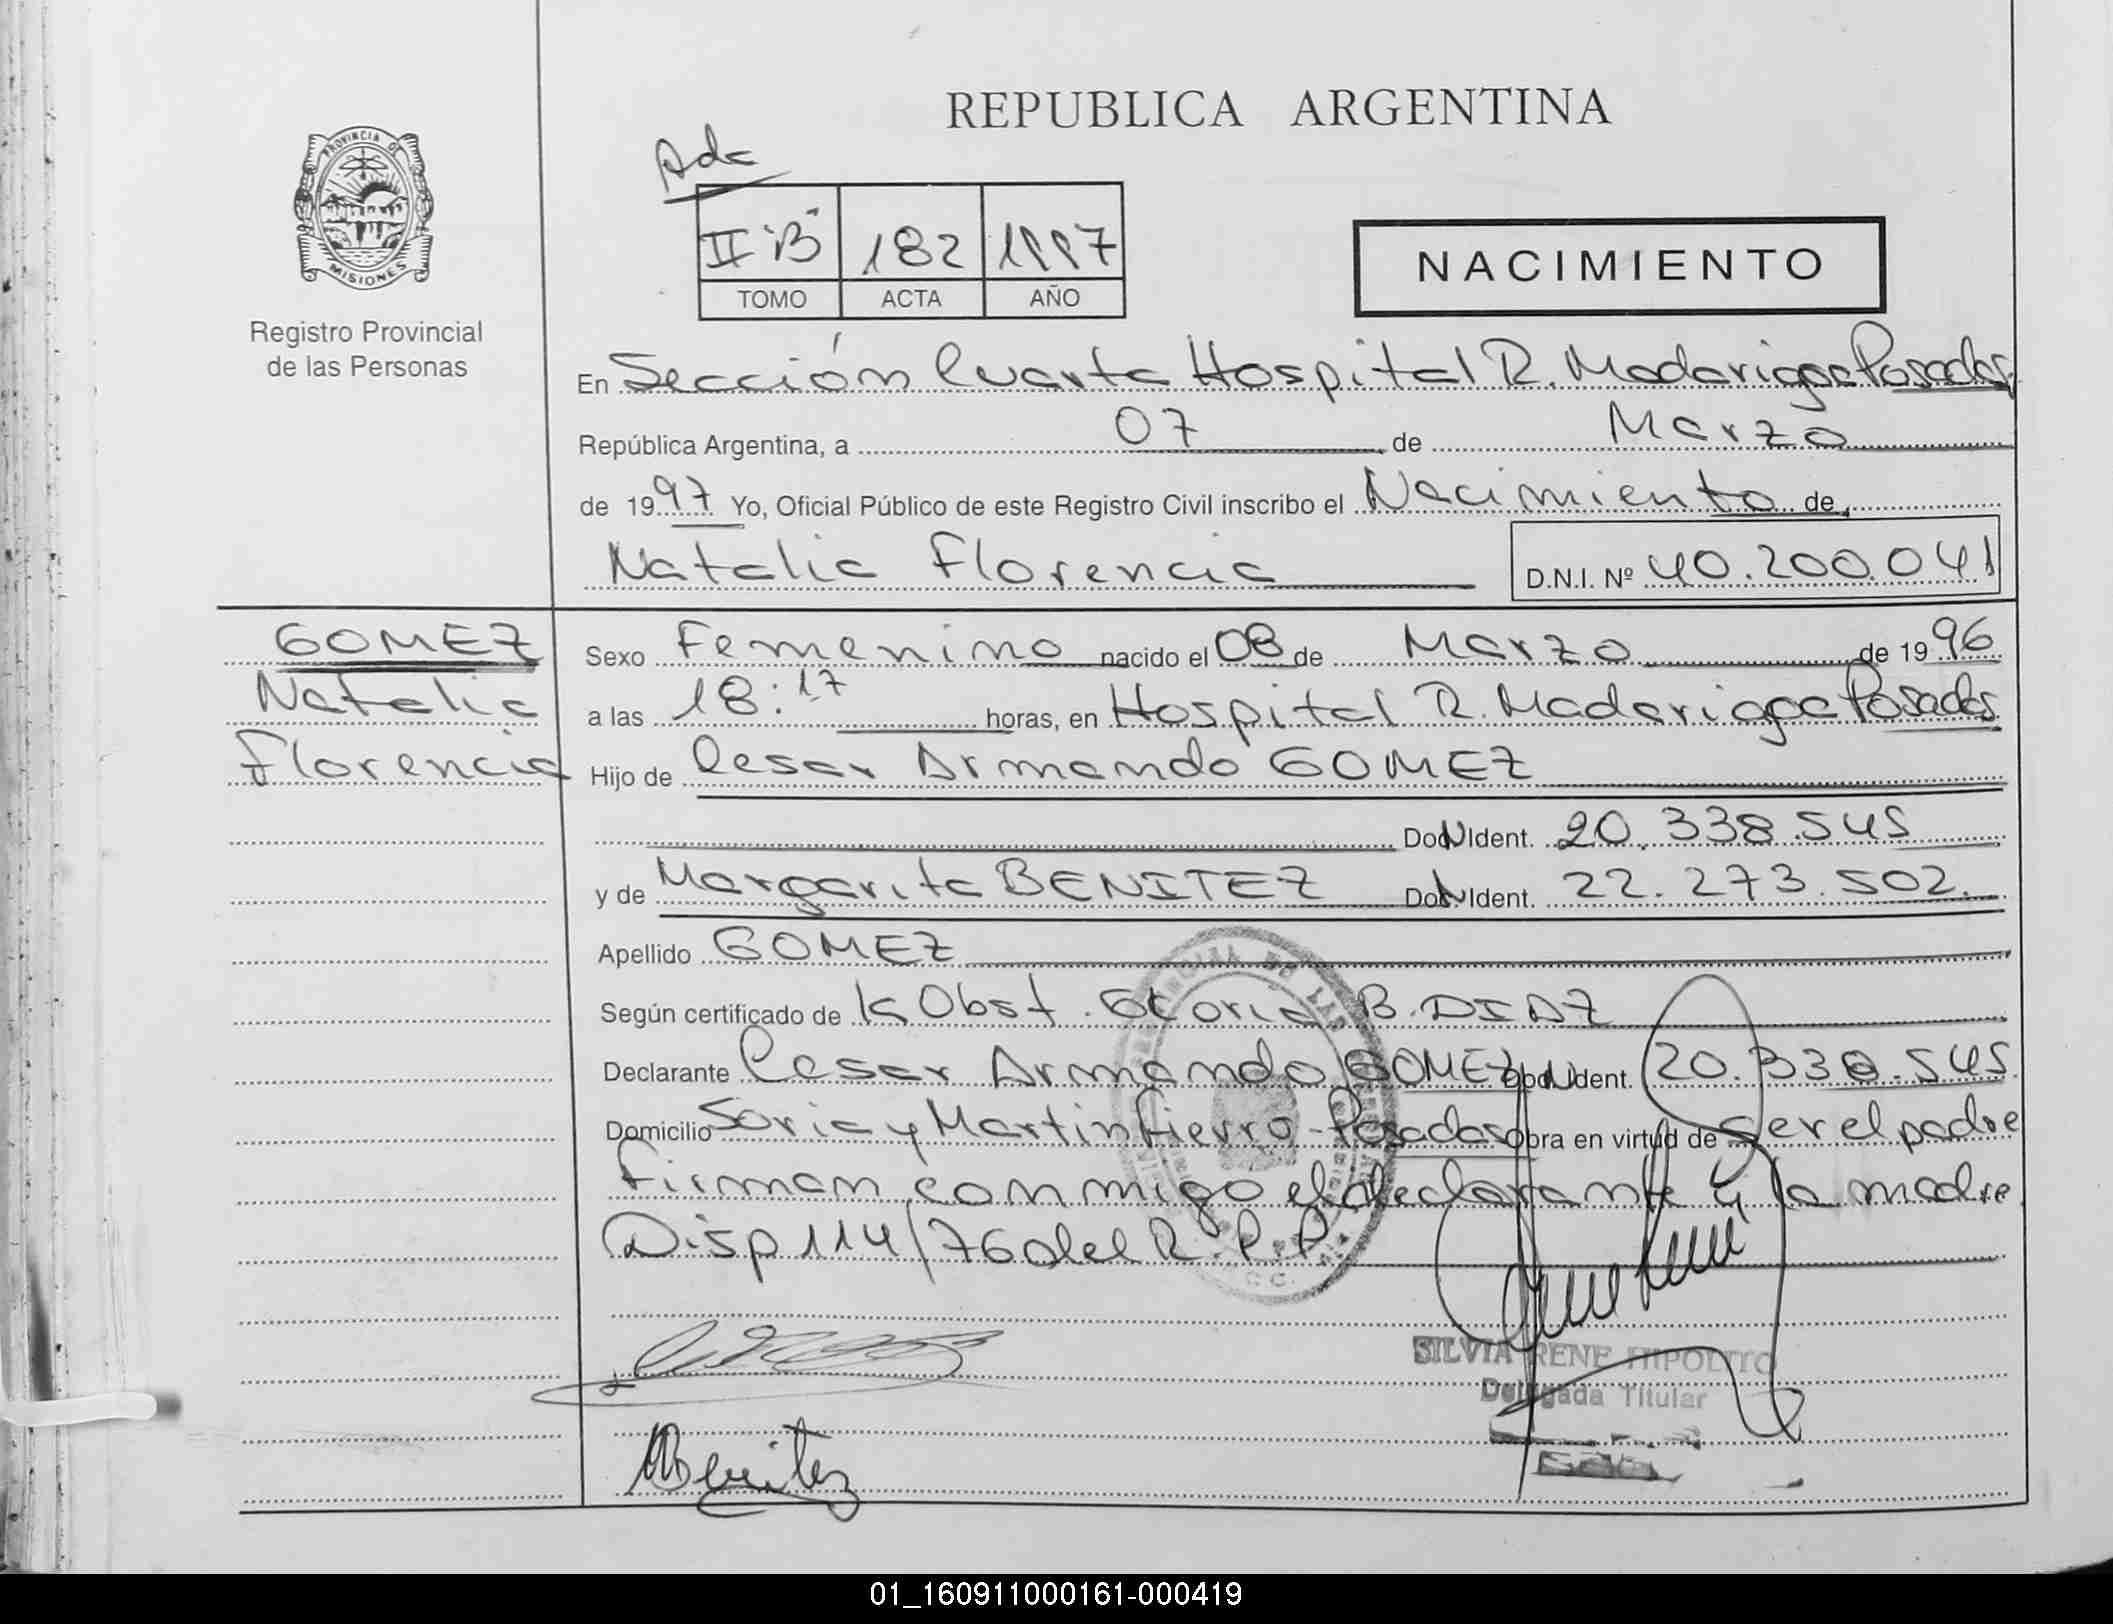 REPUBLICA ARGENTINA
PROVINCIA DE
MISIONES
Registro Provincial
de las Personas
Adc
II "B" 182 1997
TOMO ACTA AÑO
NACIMIENTO
En Sección Cuarta Hospital R. Madariaga Posadas
República Argentina, a 07 de Marzo
de 1997 Yo, Oficial Público de este Registro Civil inscribo el Nacimiento de
Natalia Florencia D.N.I. Nº 40.200.041
GOMEZ
Natalia
Florencia
Sexo Femenino nacido el 08 de Marzo de 1996
a las 18:17 horas, en Hospital R. Madariaga Posadas
Hijo de Cesar Armando GOMEZ
Doc. Ident. 20.338.545
y de Margarita BENITEZ Doc. Ident. 22.273.502
Apellido GOMEZ
Según certificado de la Obst. Gloria B. DIAZ
Declarante Cesar Armando GOMEZ Doc. Ident. 20.338.545
Domicilio Soria y Martin Fierro - Posadas obra en virtud de ser el padre
Firman conmigo el declarante y la madre
Disp 114/76 del R.P.P.
SILVIA RENE HIPOLITO
Delegada Titular
MBenitez
01_160911000161-000419